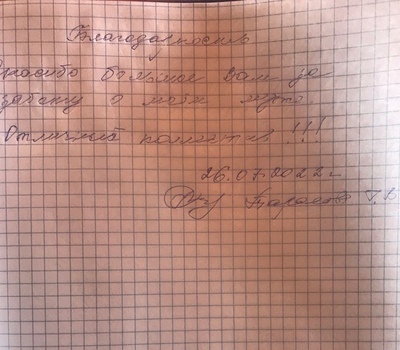 Благодарность
Спасибо большое Вам за
заботу о моём муже.
Отличный коллектив!!!
26.07.2022 г.
Т.В